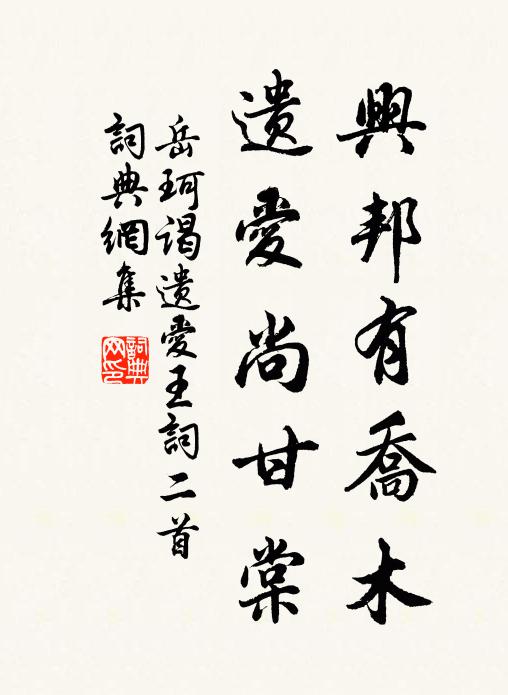 興邦有喬木
遺愛尚甘棠
岳珂謁遺愛王詞二首
詞典網集
詞典
网印